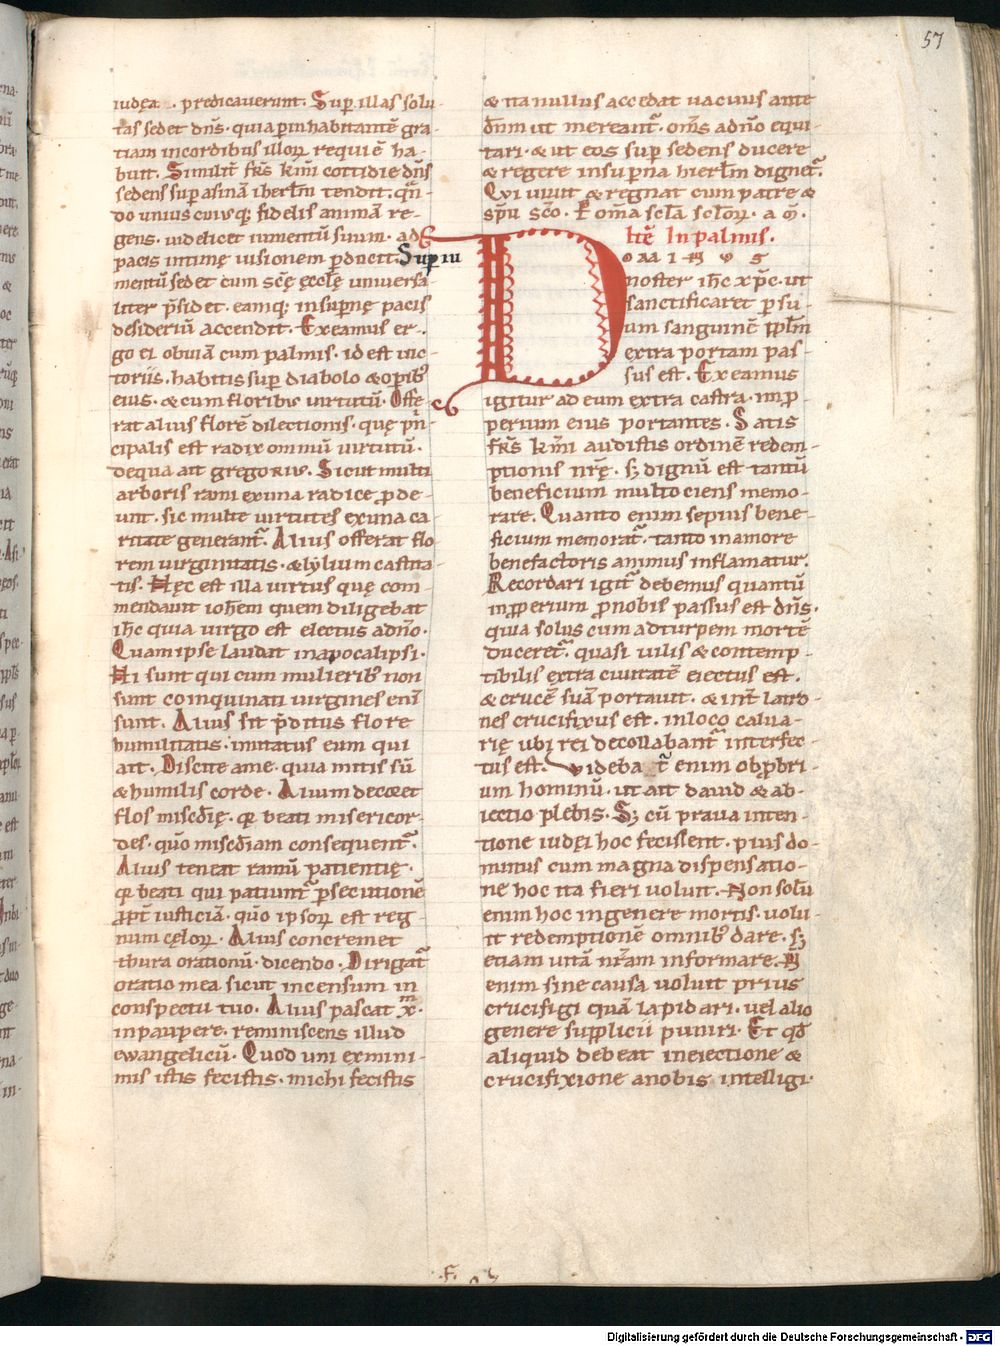 57
iudęa. predicauerunt. Sup̄ illas solu-
tas sedet dn̄s. quia p̄ inhabitantē gra-
tiam in cordibus illoꝝ requiē ha-
buit. Similit̄ frs̄ kmi̅ cottidie dn̄s
sedens sup̄ asinā iherl̄m tendit. qn̄-
do unius cuiusq; fidelis animā re-
gens. uidelicet iumentū suum. ad ę
pacis intimę uisionem p̄ducit. Sup iu
mentū sedet cum scē ęcclę uniuersa-
liter p̄sidet. eamq; in supnę pacis
desideriū accendit. Exeamus er-
go ei obuiā cum palmis. id est uic-
toriis. habitis sup̄ diabolo & opib;
eius. & cum floribus uirtutū. Offe-
rat alius florē dilectionis. quę p̄n-
cipalis est radix omniū uirtutū.
de qua ait gregorius. Sicut multi
arboris rami ex una radice ꝓde-
unt. sic multe uirtutes ex una ca-
ritate generant̄. Alius offerat flo
rem uirginitatis. & lylium castita-
tis. Hęc est illa uirtus quę com-
mendauit ioh̄em quem diligebat
ih̄c quia uirgo est electus a dn̄o.
Quam ipse laudat in apocalipsi.
Hi sunt qui cum mulierib; non
sunt coinquinati uirgines eni̅
sunt. Alius sit p̄ditus flore
humilitatis. imitatus eum qui
ait. Discite a me. quia mitis sū
& humilis corde. Alium decoret
flos misc̄dię. qr̄ beati misericor-
des. qūo misc̄diam consequent̄.
Alius teneat ramū patientię.
qr̄ beati qui patiunt̄ p̄secutionē
ꝓpt̄ iusticiā. qūo ipsoꝝ est reg-
num cęloꝝ. Alius concremet
thura orationū. dicendo. Dirigat̄
oratio mea sicut incensum in
conspectu tuo. Alius pascat xm̄.
in paupere. reminiscens illud
ewangelicū. Quod uni ex mini-
mis istis fecistis. michi fecistis
& ita nullus accedat uacuus ante
dn̄m ut mereant̄. om̄s a dn̄o equi-
tari. & ut eos sup̄ sedens ducere
& regere in supna hierl̄m dignet̄.
Qui uiuit & regnat cum patre &
spu̅ sc̄o. P om̄a scl̄a scl̄oꝝ. am̄.
Itē In palmis.
D
noster ih̄c xp̄c. ut
sanctificaret p̄ su-
um sanguinē ppl̄m
extra portam pas-
sus est. Exeamus
igitur ad eum extra castra. inp-
perium eius portantes. Satis
frs̄ kmi̅ audistis ordinē redem-
ptionis nrę. s; dignū est tantū
beneficium multociens memo-
rare. Quanto enim sepius bene-
ficium memorat̄. tanto in amore
benefactoris animus inflamatur.
Recordari igit̄ debemus quantū
inpperium ꝓ nobis passus est dn̄s.
quia solus cum ad turpem mortē
duceret̄. quasi uilis & contemp-
tibilis extra ciuitatē eiectus est.
& crucē suā portauit. & int̄ latro-
nes crucifixus est. in loco calua-
rię ubi rei decollabant̄ interfec-
tus est. Videbat̄ enim obpbri-
um hominū. ut ait dauid & ab-
iectio plebis. S; cū praua inten-
tione iudęi hoc fecissent. pius do-
minus cum magna dispensatio-
ne hoc ita fieri uoluit. Non solū
enim hoc in genere mortis. uolu-
it redemptionē omnib; dare. s;
etiam uitā nrā̅m informare. N̄
enim sine causa uoluit prius
crucifigi quā lapidari. uel alio
genere supplicii puniri. Et qd̄
aliquid debeat in eiectione &
crucifixione a nobis intelligi.
Digitalisierung gefördert durch die Deutsche Forschungsgemeinschaft - DFG